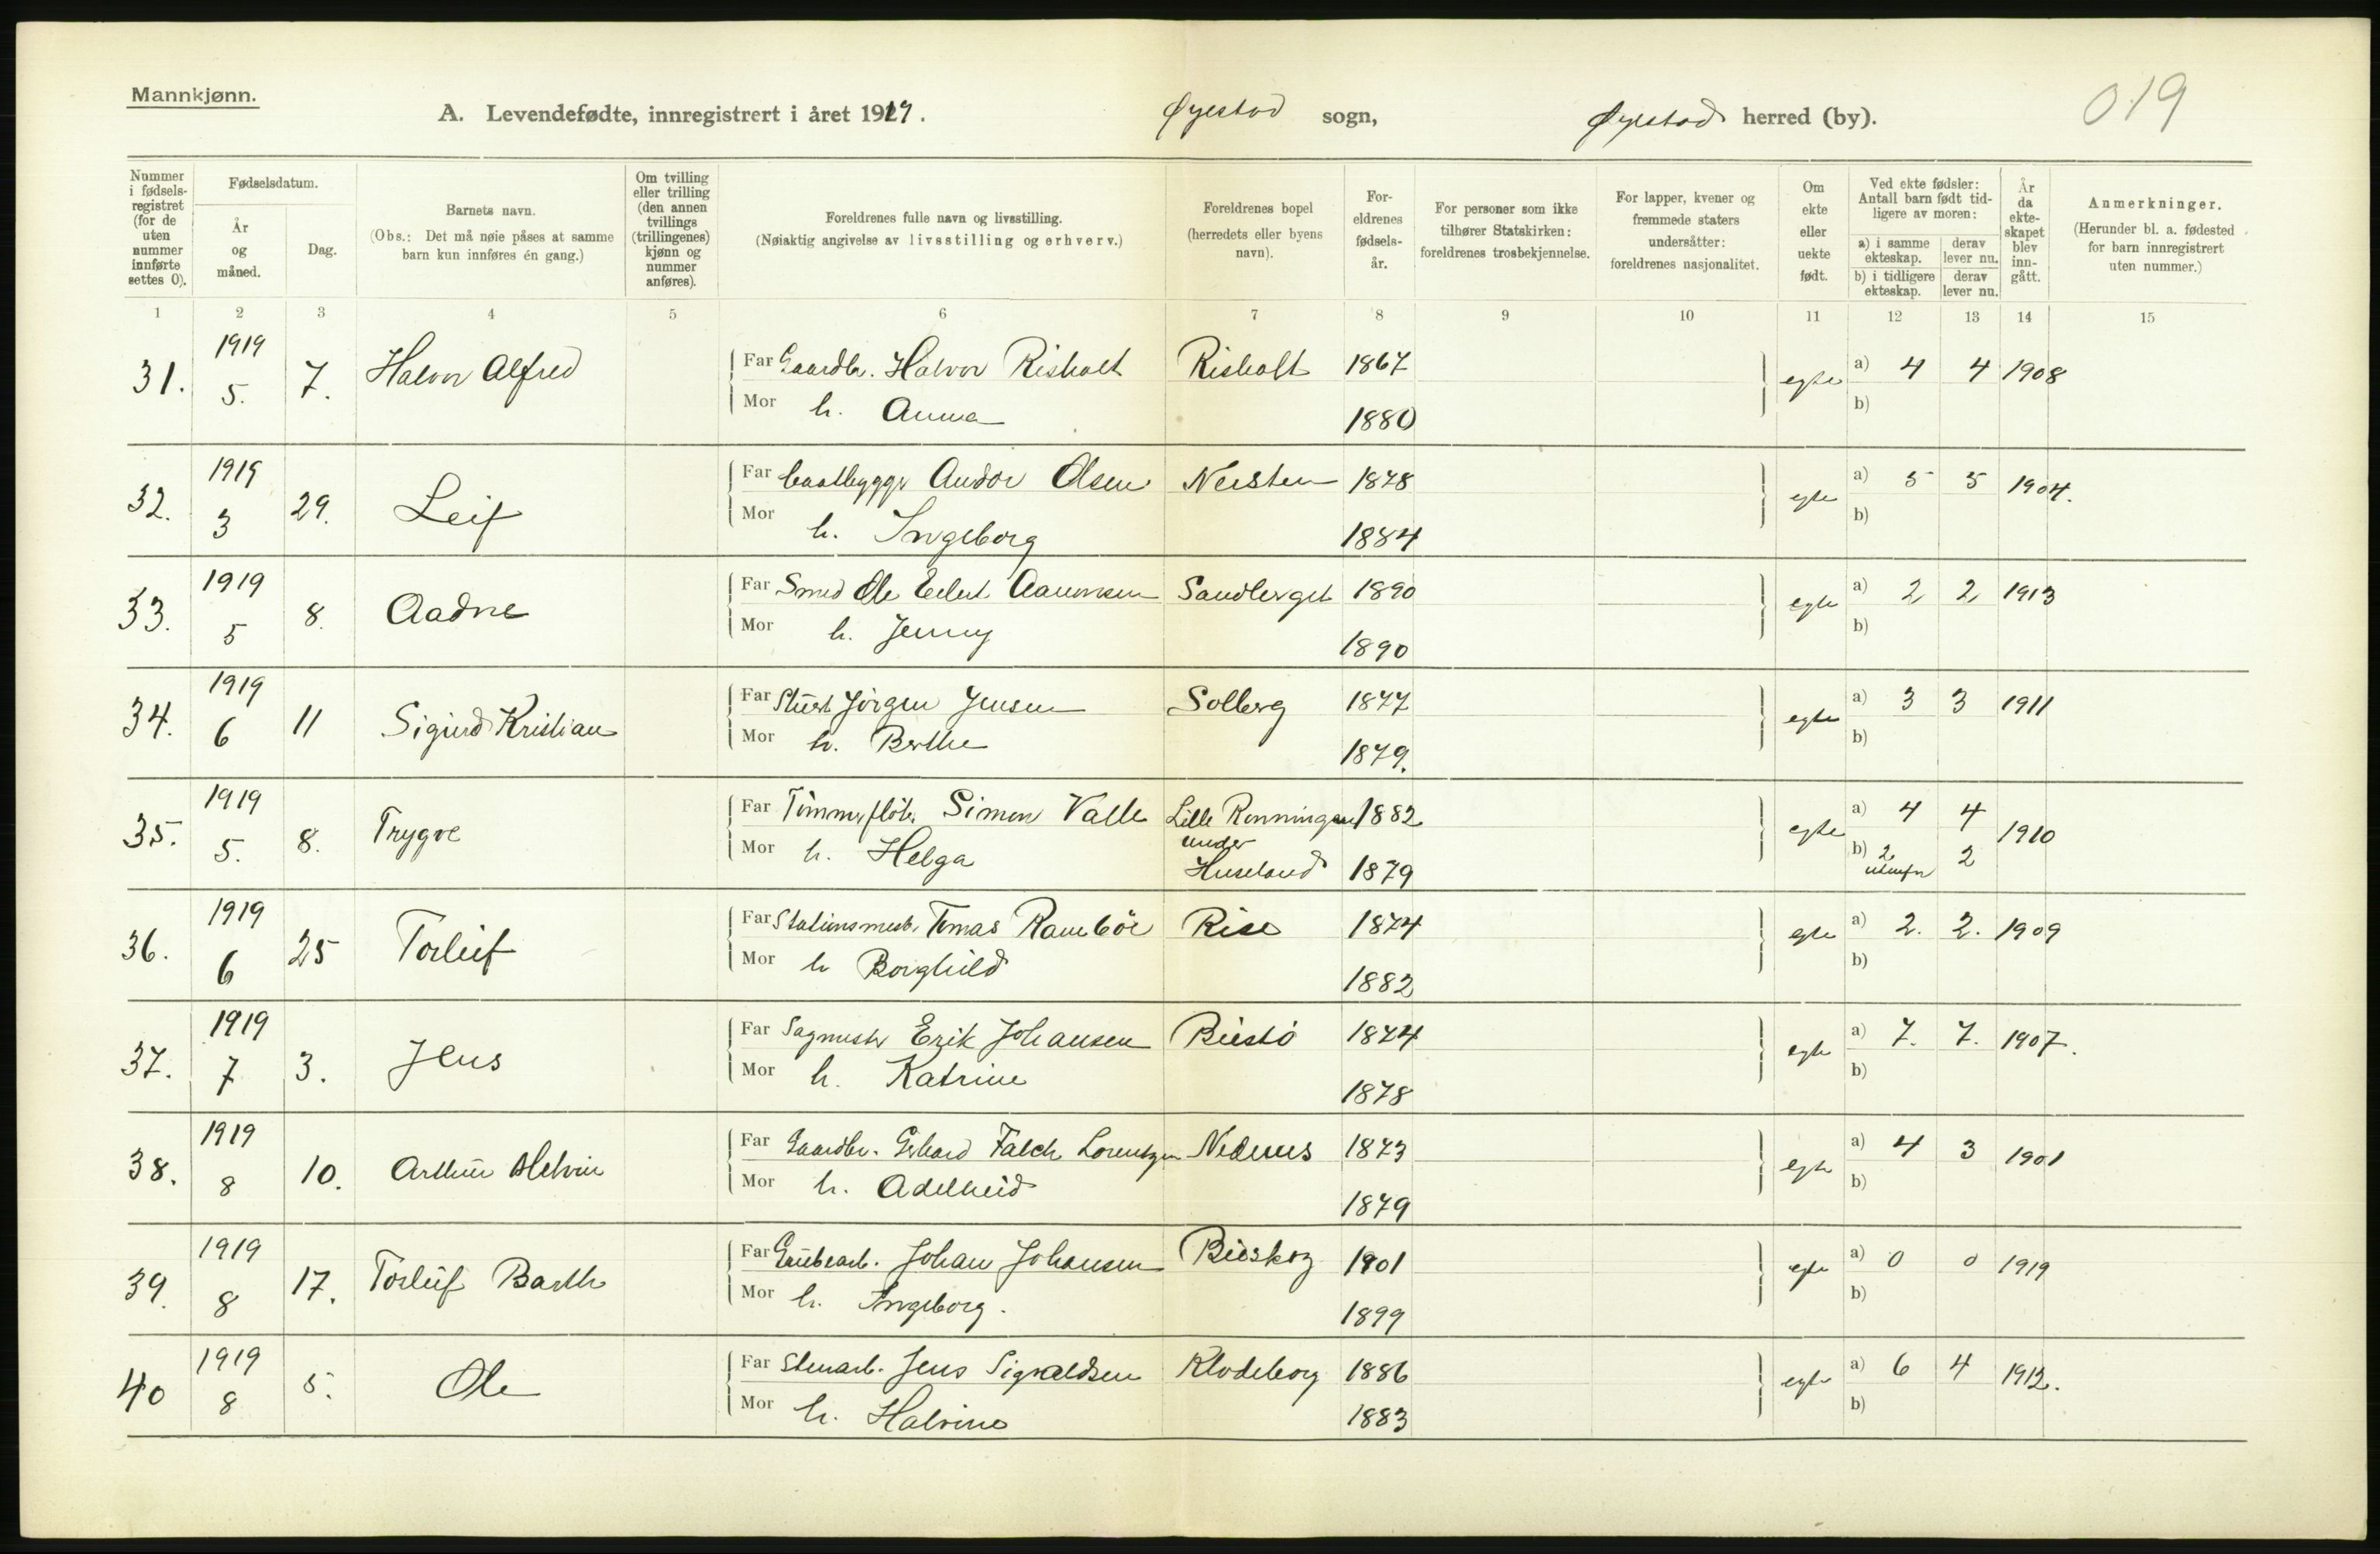 Mannkjønn.
A. Levendefødte, innregistrert i året 1919. Øyestad sogn, Øyestad herred (by). 019
Nummer i fødsels-registret (for de uten nummer innførte settes 0).
Fødselsdatum.
År og måned.
Dag.
Barnets navn.
(Obs.: Det må nøie påses at samme barn kun innføres én gang.)
Om tvilling eller trilling (den annen tvillings (trillingenes) kjønn og nummer anføres).
Foreldrenes fulle navn og livsstilling.
(Nøiaktig angivelse av livsstilling og erhverv.)
Foreldrenes bopel (herredets eller byens navn).
For-eldrenes fødsels-år.
For personer som ikke tilhører Statskirken: foreldrenes trosbekjennelse.
For lapper, kvener og fremmede staters undersåtter: foreldrenes nasjonalitet.
Om ekte eller uekte født.
Ved ekte fødsler: Antall barn født tid-ligere av moren:
a) i samme ekteskap. derav lever nu.
b) i tidligere ekteskap. derav lever nu.
År da ekte-skapet blev inn-gått.
Anmerkninger.
(Herunder bl. a. fødested for barn innregistrert uten nummer.)
1 2 3 4 5 6 7 8 9 10 11 12 13 14 15
31. 1919 5. 7. Halvor Alfred Far Gaardbr. Halvor Risholt Risholt 1867 egte a) 4 4 1908
Mor h. Anna 1880 b)
32. 1919 3 29. Leif Far Baatbygger Andor Olsen Nersten 1878 egte a) 5 5 1904.
Mor h. Ingeborg 1884 b)
33. 1919 5 8. Aadne Far Smed Ole Eilert Aanonsen Sandberget 1890 egte a) 2 2 1913
Mor h. Jenny 1890 b)
34. 1919 6 11 Sigurd Kristian Far Jörgen Jensen Solberg 1877 egte a) 3 3 1911
Mor h. Berthe 1879. b)
35. 1919 5. 8. Trygve Far Tömmerflöter Simon Valle Lille Rønningen 1882 egte a) 4 4 1910
Mor h. Helga under Huseland 1879 b) 2 2
36. 1919 6 25 Torleif Far Stationsmest. Tomas Ramböl Rise 1874 egte a) 2. 2. 1909
Mor h Borghild 1882 b)
37. 1919 7 3. Jens Far Sagmester Erik Johansen 1874 egte a) 7. 7. 1907.
Mor h. Katrine 1878 b)
38. 1919 8 10. Arthur Melvin Far Gaardbr. Gerhard Falch Lorentzen Nedenes 1873 egte a) 4 3 1901
Mor h. Adelheid 1879 b)
39. 1919 8 17. Torleif Barth Far Grubearb. Johan Johansen 1901 egte a) 0 0 1919
Mor h. Ingeborg. 1899 b)
40 1919 8 5. Ole Far Stenarb. Jens Sigvaldsen Klodeborg 1886 egte a) 6 4 1912.
Mor h. Halvine 1883 b)